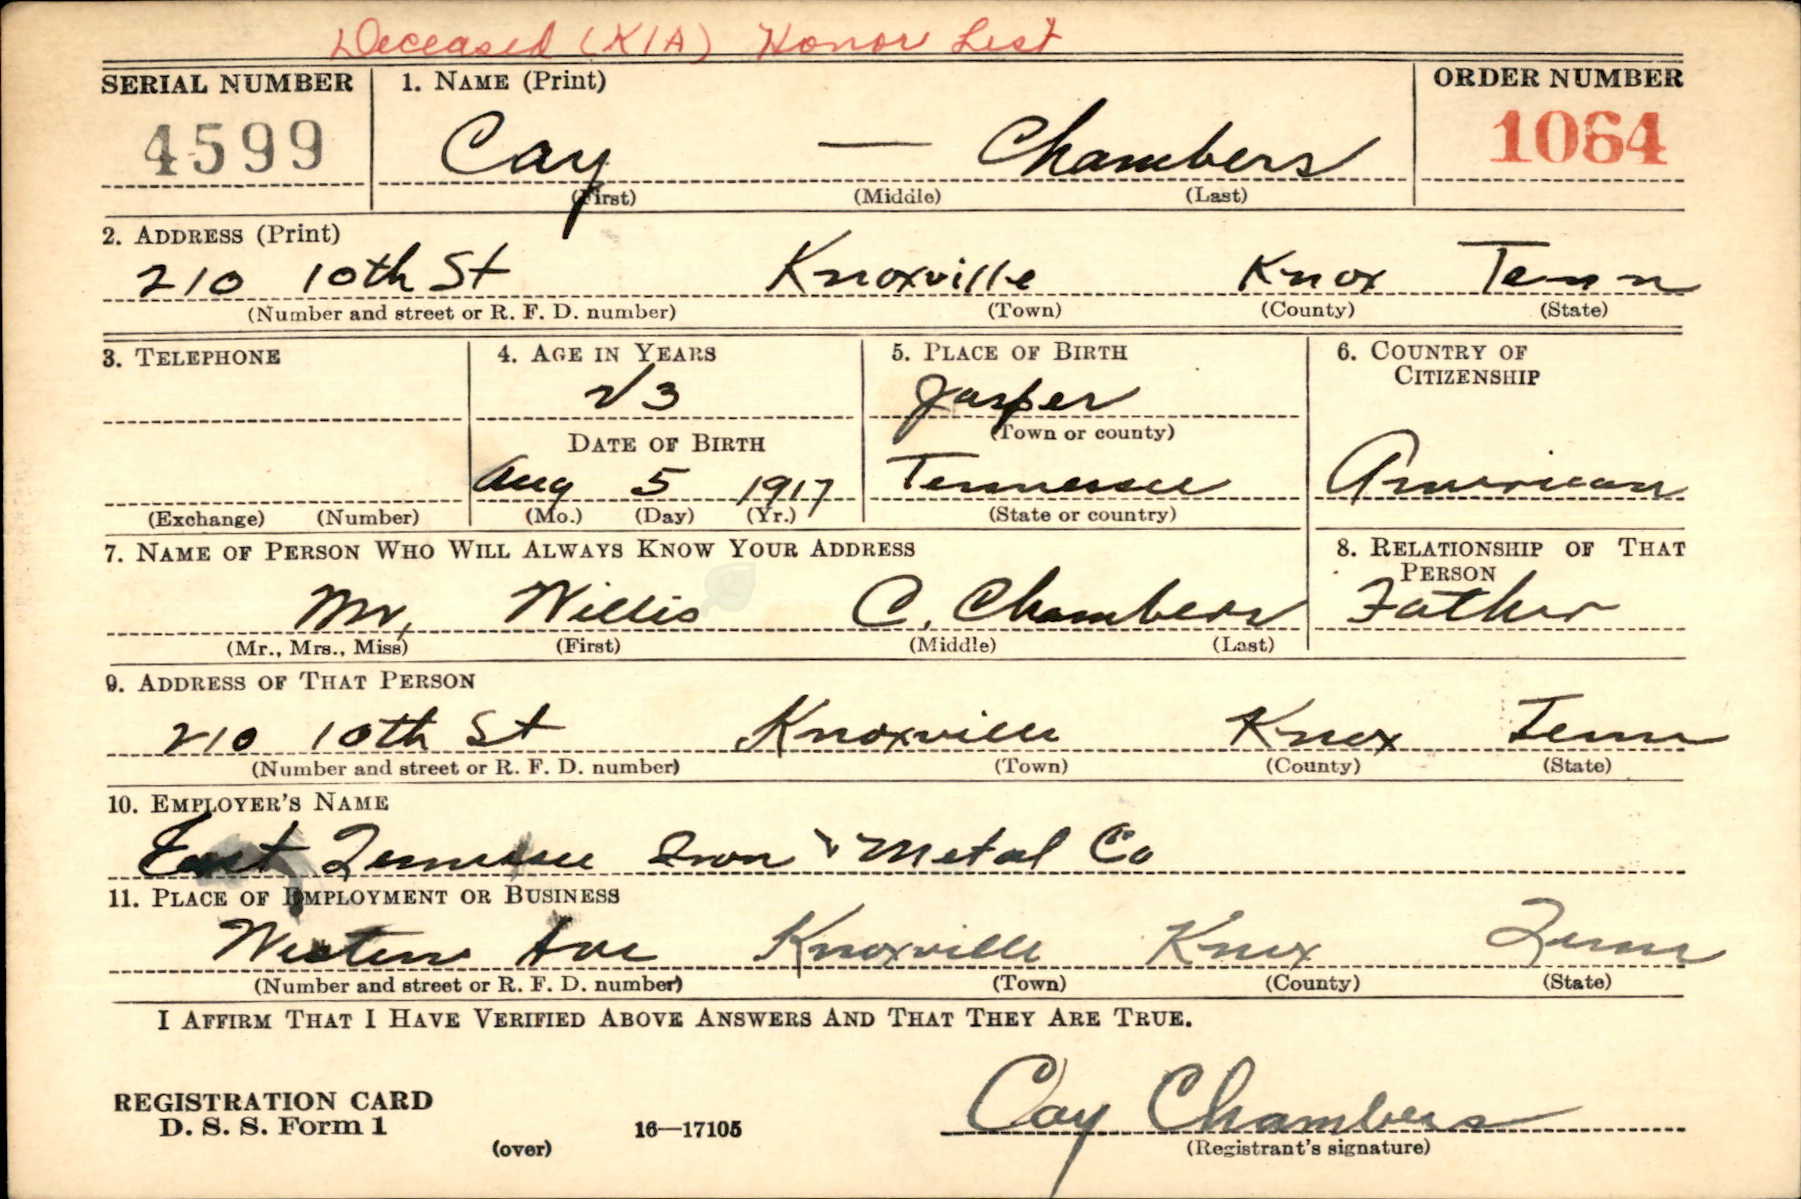 Deceased (KIA) Honor List
SERIAL NUMBER 1. NAME (Print) ORDER NUMBER
4599 Cay — Chambers 1064
(First) (Middle) (Last)
2. ADDRESS (Print)
210 10th St Knoxville Knox Tenn
(Number and street or R. F. D. number) (Town) (County) (State)
3. TELEPHONE 4. AGE IN YEARS 5. PLACE OF BIRTH 6. COUNTRY OF CITIZENSHIP
23 Jasper
DATE OF BIRTH (Town or county)
Aug 5 1917 Tennessee American
(Exchange) (Number) (Mo.) (Day) (Yr.) (State or country)
7. NAME OF PERSON WHO WILL ALWAYS KNOW YOUR ADDRESS 8. RELATIONSHIP OF THAT PERSON
Mr. Willis C. Chambers Father
(Mr., Mrs., Miss) (First) (Middle) (Last)
9. ADDRESS OF THAT PERSON
210 10th St Knoxville Knox Tenn
(Number and street or R. F. D. number) (Town) (County) (State)
10. EMPLOYER'S NAME
East Tennessee Iron & Metal Co
11. PLACE OF EMPLOYMENT OR BUSINESS
Western Ave Knoxville Knox Tenn
(Number and street or R. F. D. number) (Town) (County) (State)
I AFFIRM THAT I HAVE VERIFIED ABOVE ANSWERS AND THAT THEY ARE TRUE.
REGISTRATION CARD
D. S. S. Form 1 Cay Chambers
(over) 16—17105 (Registrant's signature)